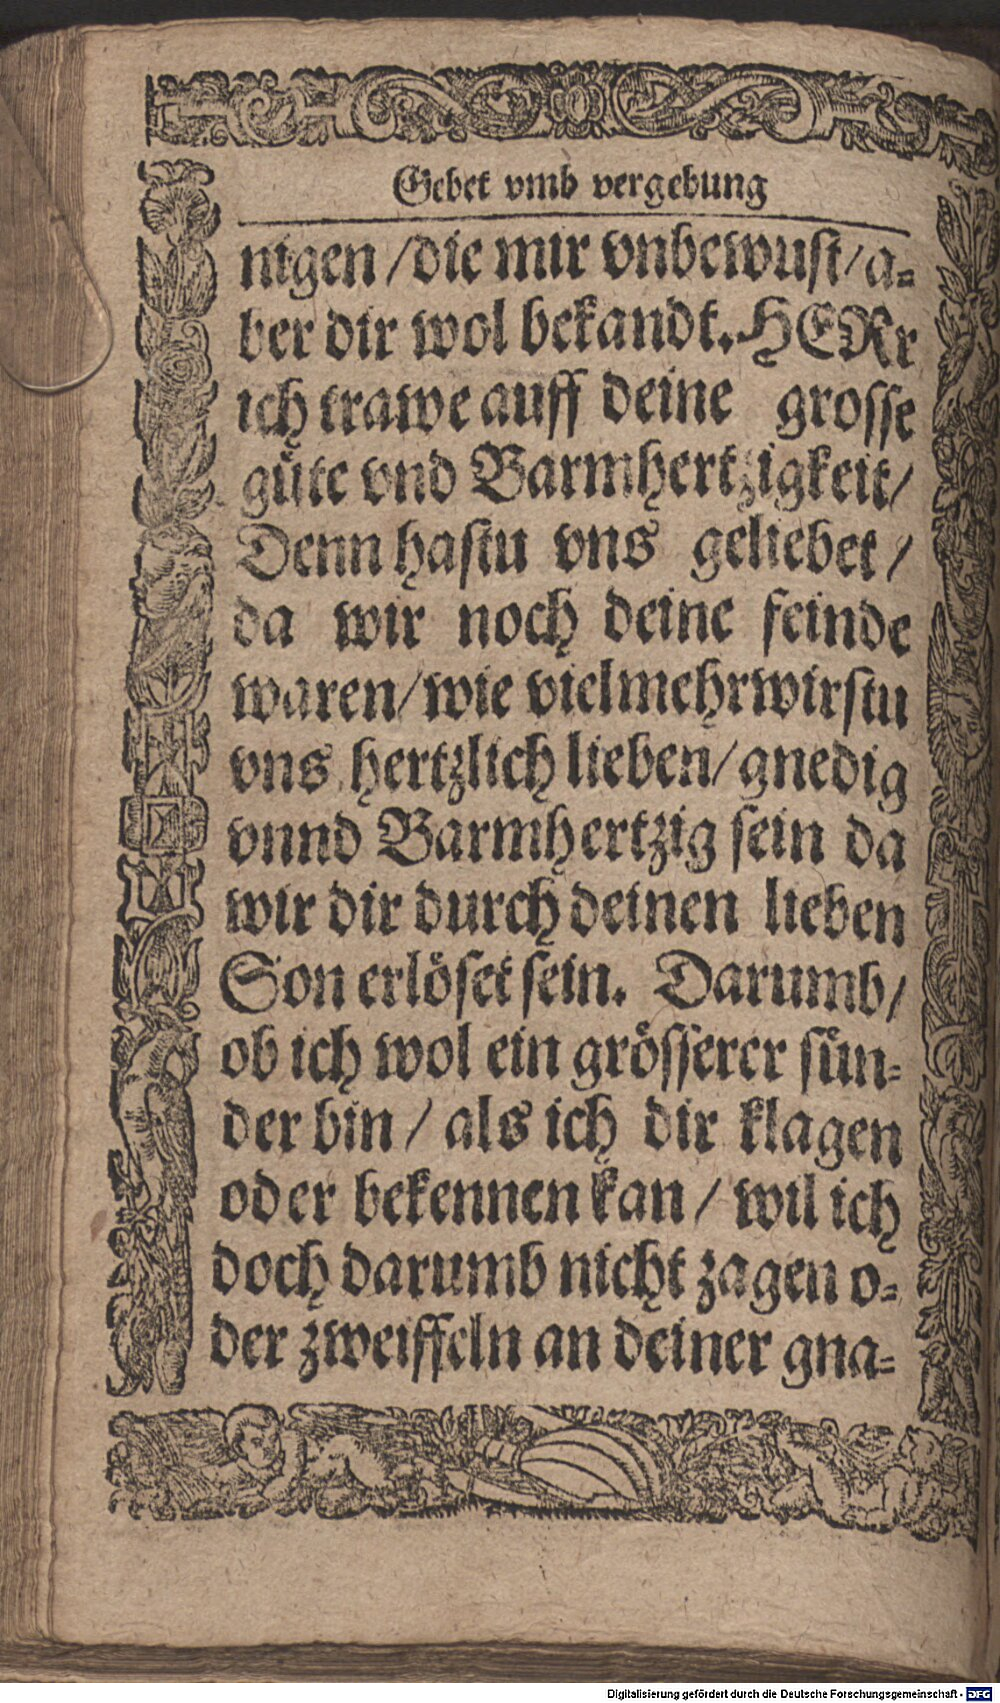 Gebet vmb vergebung
nigen / die mir vnbewust / a⸗
ber dir wol bekandt. HERr
ich trawe auff deine grosse
güte vnd Barmhertzigkeit /
Denn hastu vns geliebet /
da wir noch deine feinde
waren / wie vielmehr wirstu
vns hertzlich lieben / gnedig
vnnd Barmhertzig sein da
wir dir durch deinen lieben
Son erlöset sein. Darumb /
ob ich wol ein grösserer sün⸗
der bin / als ich dir klagen
oder bekennen kan / wil ich
doch darumb nicht zagen o⸗
der zweiffeln an deiner gna⸗
Digitalisierung gefördert durch die Deutsche Forschungsgemeinschaft - DFG